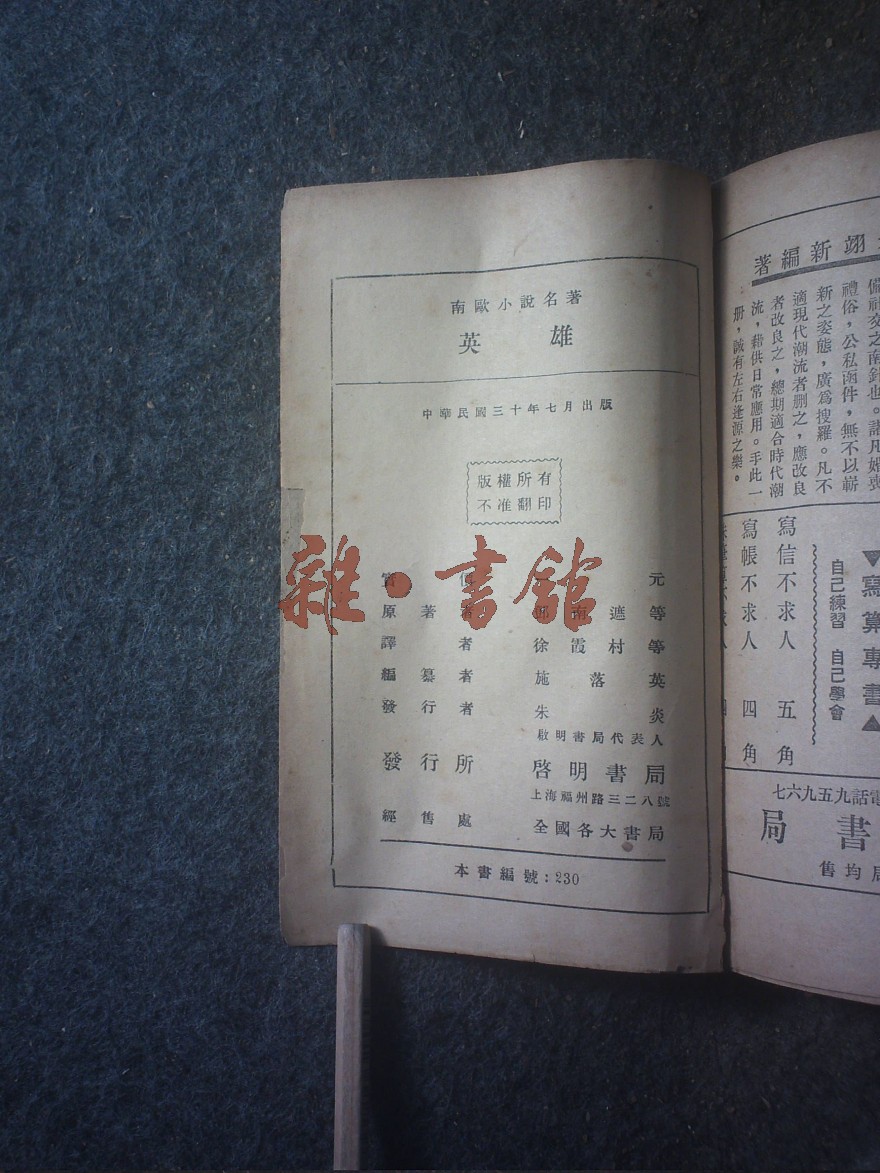 南歐小說名著
英 雄
中華民國三十年七月出版
版權所有
不准翻印
實 元
原著者 南遮等
譯者 徐霞村等
編纂者 施落英
發行者 朱炎
啟明書局代表人
發行所 啓明書局
上海福州路三二八號
經售處 全國各大書局
本書編號:230
雜·書館
翊新編著
備社交之南針也。諸凡婚喪
禮俗,公私函件,無不以嶄
新之姿態,廣爲搜羅。凡不
適現代潮流者删之,應改良
者改良之,總期適合時代潮
流,藉供日常應用。手此一
册,誠有左右逢源之樂。
▼寫算專書▲
自己練習 自己學會
寫信不求人 五角
寫帳不求人 四角
電話九五九六七
書局
局均售